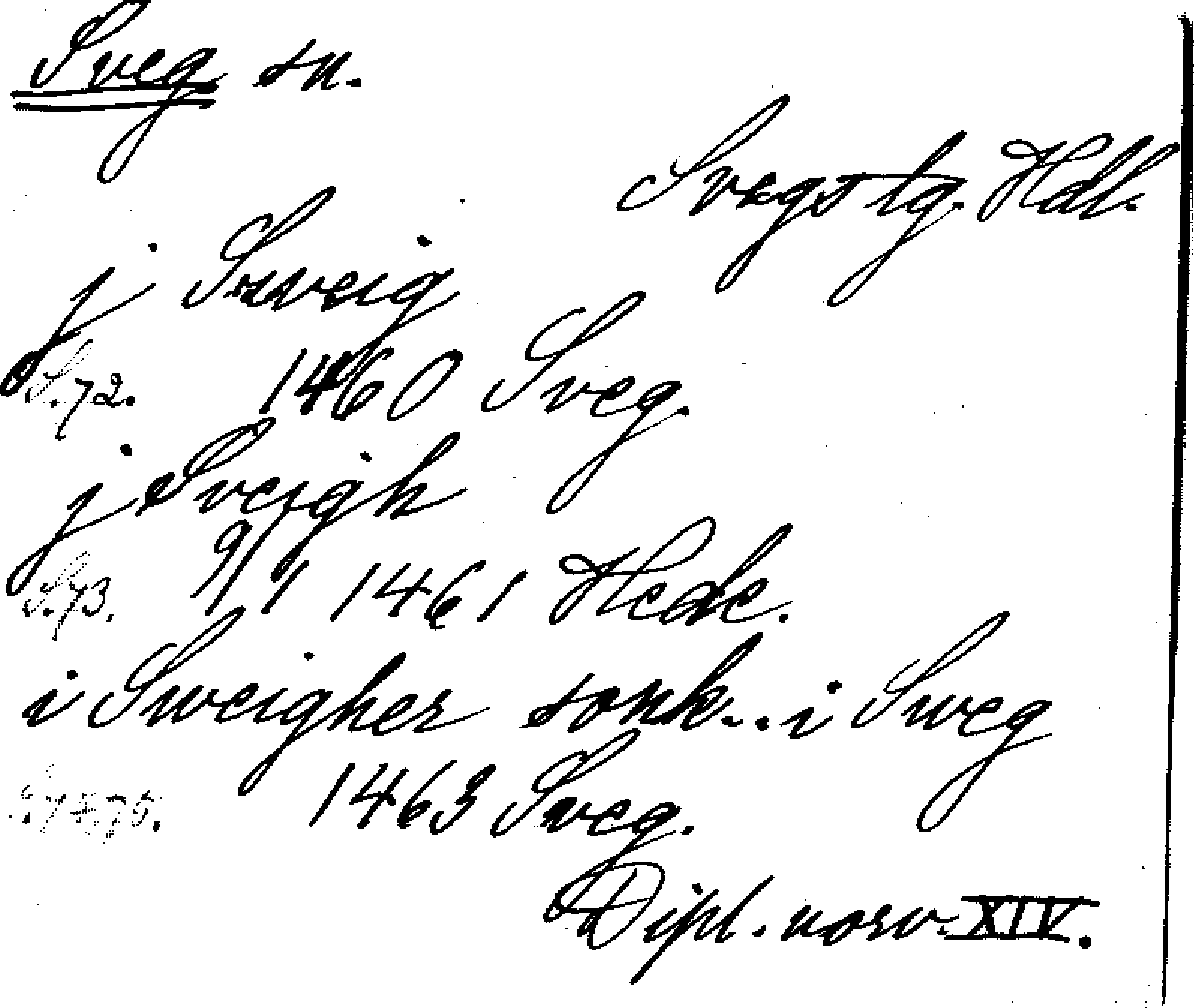 Sveg sn.
Svegs tg. Hdl.
j Szweig
S. 72. 1460 Sveg.
j Sveigh
S. 73. 9/1 1461 Hede.
i Sweigher sokn... i Sweg
1463 Sveg.
Dipl. norv. XIV.